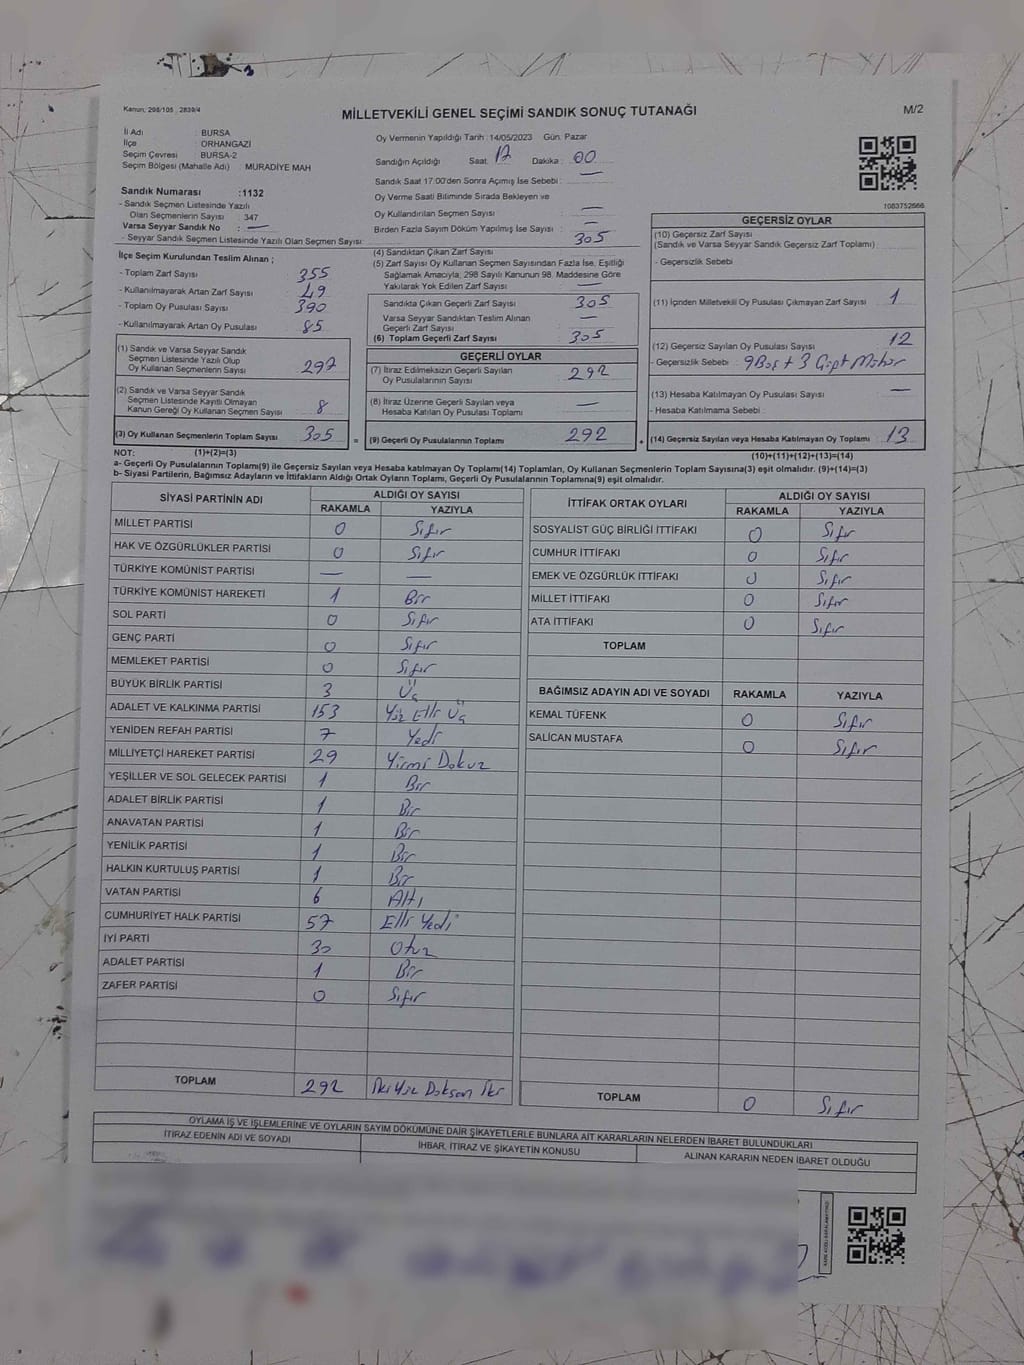 Kanun: 298/105 , 2839/4
MİLLETVEKİLİ GENEL SEÇİMİ SANDIK SONUÇ TUTANAĞI
M/2
İl Adı : BURSA
İlçe : ORHANGAZİ
Seçim Çevresi : BURSA-2
Seçim Bölgesi (Mahalle Adı) : MURADİYE MAH
Oy Vermenin Yapıldığı Tarih : 14/05/2023 Gün: Pazar
Sandığın Açıldığı Saat: 17 Dakika : 00
Sandık Saat 17:00'den Sonra Açımış İse Sebebi : —
Oy Verme Saati Bitiminde Sırada Bekleyen ve
Oy Kullandırılan Seçmen Sayısı : —
Birden Fazla Sayım Döküm Yapılmış İse Sayısı : —
1083752666
Sandık Numarası :1132
- Sandık Seçmen Listesinde Yazılı
Olan Seçmenlerin Sayısı : 347
Varsa Seyyar Sandık No : —
- Seyyar Sandık Seçmen Listesinde Yazılı Olan Seçmen Sayısı:
İlçe Seçim Kurulundan Teslim Alınan ;
- Toplam Zarf Sayısı 355
- Kullanılmayarak Artan Zarf Sayısı 49
- Toplam Oy Pusulası Sayısı 390
- Kullanılmayarak Artan Oy Pusulası 85
(1) Sandık ve Varsa Seyyar Sandık
Seçmen Listesinde Yazılı Olup
Oy Kullanan Seçmenlerin Sayısı 297
(2) Sandık ve Varsa Seyyar Sandık
Seçmen Listesinde Kayıtlı Olmayan
Kanun Gereği Oy Kullanan Seçmen Sayısı 8
(3) Oy Kullanan Seçmenlerin Toplam Sayısı 305
(1)+(2)=(3)
(4) Sandıktan Çıkan Zarf Sayısı 305
(5) Zarf Sayısı Oy Kullanan Seçmen Sayısından Fazla İse, Eşitliği
Sağlamak Amacıyla; 298 Sayılı Kanunun 98. Maddesine Göre
Yakılarak Yok Edilen Zarf Sayısı : —
Sandıkta Çıkan Geçerli Zarf Sayısı 305
Varsa Seyyar Sandıktan Teslim Alınan
Geçerli Zarf Sayısı —
(6) Toplam Geçerli Zarf Sayısı 305
GEÇERLİ OYLAR
(7) İtiraz Edilmeksizin Geçerli Sayılan
Oy Pusulalarının Sayısı 292
(8) İtiraz Üzerine Geçerli Sayılan veya
Hesaba Katılan Oy Pusulası Toplamı —
= (9) Geçerli Oy Pusulalarının Toplamı 292
GEÇERSİZ OYLAR
(10) Geçersiz Zarf Sayısı
(Sandık ve Varsa Seyyar Sandık Geçersiz Zarf Toplamı)
- Geçersizlik Sebebi
(11) İçinden Milletvekili Oy Pusulası Çıkmayan Zarf Sayısı 1
(12) Geçersiz Sayılan Oy Pusulası Sayısı 12
- Geçersizlik Sebebi : 9 Boş + 3 Çift Mühür
(13) Hesaba Katılmayan Oy Pusulası Sayısı —
- Hesaba Katılmama Sebebi :
+ (14) Geçersiz Sayılan veya Hesaba Katılmayan Oy Toplamı 13
(10)+(11)+(12)+(13)=(14)
NOT:
a- Geçerli Oy Pusulalarının Toplamı(9) ile Geçersiz Sayılan veya Hesaba katılmayan Oy Toplamı(14) Toplamları, Oy Kullanan Seçmenlerin Toplam Sayısına(3) eşit olmalıdır. (9)+(14)=(3)
b- Siyasi Partilerin, Bağımsız Adayların ve İttifakların Aldığı Ortak Oyların Toplamı, Geçerli Oy Pusulalarının Toplamına(9) eşit olmalıdır.
SİYASİ PARTİNİN ADI ALDIĞI OY SAYISI
RAKAMLA YAZIYLA
MİLLET PARTİSİ 0 Sıfır
HAK VE ÖZGÜRLÜKLER PARTİSİ 0 Sıfır
TÜRKİYE KOMÜNİST PARTİSİ — —
TÜRKİYE KOMÜNİST HAREKETİ 1 Bir
SOL PARTİ 0 Sıfır
GENÇ PARTİ 0 Sıfır
MEMLEKET PARTİSİ 0 Sıfır
BÜYÜK BİRLİK PARTİSİ 3 Üç
ADALET VE KALKINMA PARTİSİ 153 Yüz Elli Üç
YENİDEN REFAH PARTİSİ 7 Yedi
MİLLİYETÇİ HAREKET PARTİSİ 29 Yirmi Dokuz
YEŞİLLER VE SOL GELECEK PARTİSİ 1 Bir
ADALET BİRLİK PARTİSİ 1 Bir
ANAVATAN PARTİSİ 1 Bir
YENİLİK PARTİSİ 1 Bir
HALKIN KURTULUŞ PARTİSİ 1 Bir
VATAN PARTİSİ 6 Altı
CUMHURİYET HALK PARTİSİ 57 Elli Yedi
İYİ PARTİ 30 Otuz
ADALET PARTİSİ 1 Bir
ZAFER PARTİSİ 0 Sıfır
TOPLAM 292 İki Yüz Doksan İki
İTTİFAK ORTAK OYLARI ALDIĞI OY SAYISI
RAKAMLA YAZIYLA
SOSYALİST GÜÇ BİRLİĞİ İTTİFAKI 0 Sıfır
CUMHUR İTTİFAKI 0 Sıfır
EMEK VE ÖZGÜRLÜK İTTİFAKI 0 Sıfır
MİLLET İTTİFAKI 0 Sıfır
ATA İTTİFAKI 0 Sıfır
TOPLAM
BAĞIMSIZ ADAYIN ADI VE SOYADI RAKAMLA YAZIYLA
KEMAL TÜFENK 0 Sıfır
SALİCAN MUSTAFA 0 Sıfır
TOPLAM 0 Sıfır
OYLAMA İŞ VE İŞLEMLERİNE VE OYLARIN SAYIM DÖKÜMÜNE DAİR ŞİKAYETLERLE BUNLARA AİT KARARLARIN NELERDEN İBARET BULUNDUKLARI
İTİRAZ EDENİN ADI VE SOYADI
İHBAR, İTİRAZ VE ŞİKAYETİN KONUSU
ALINAN KARARIN NEDEN İBARET OLDUĞU